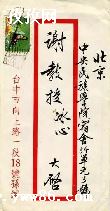 北京
中央民族學院宿舍
單元
號
謝教授冰心 大啓
台中市向上路一段18號孫緘